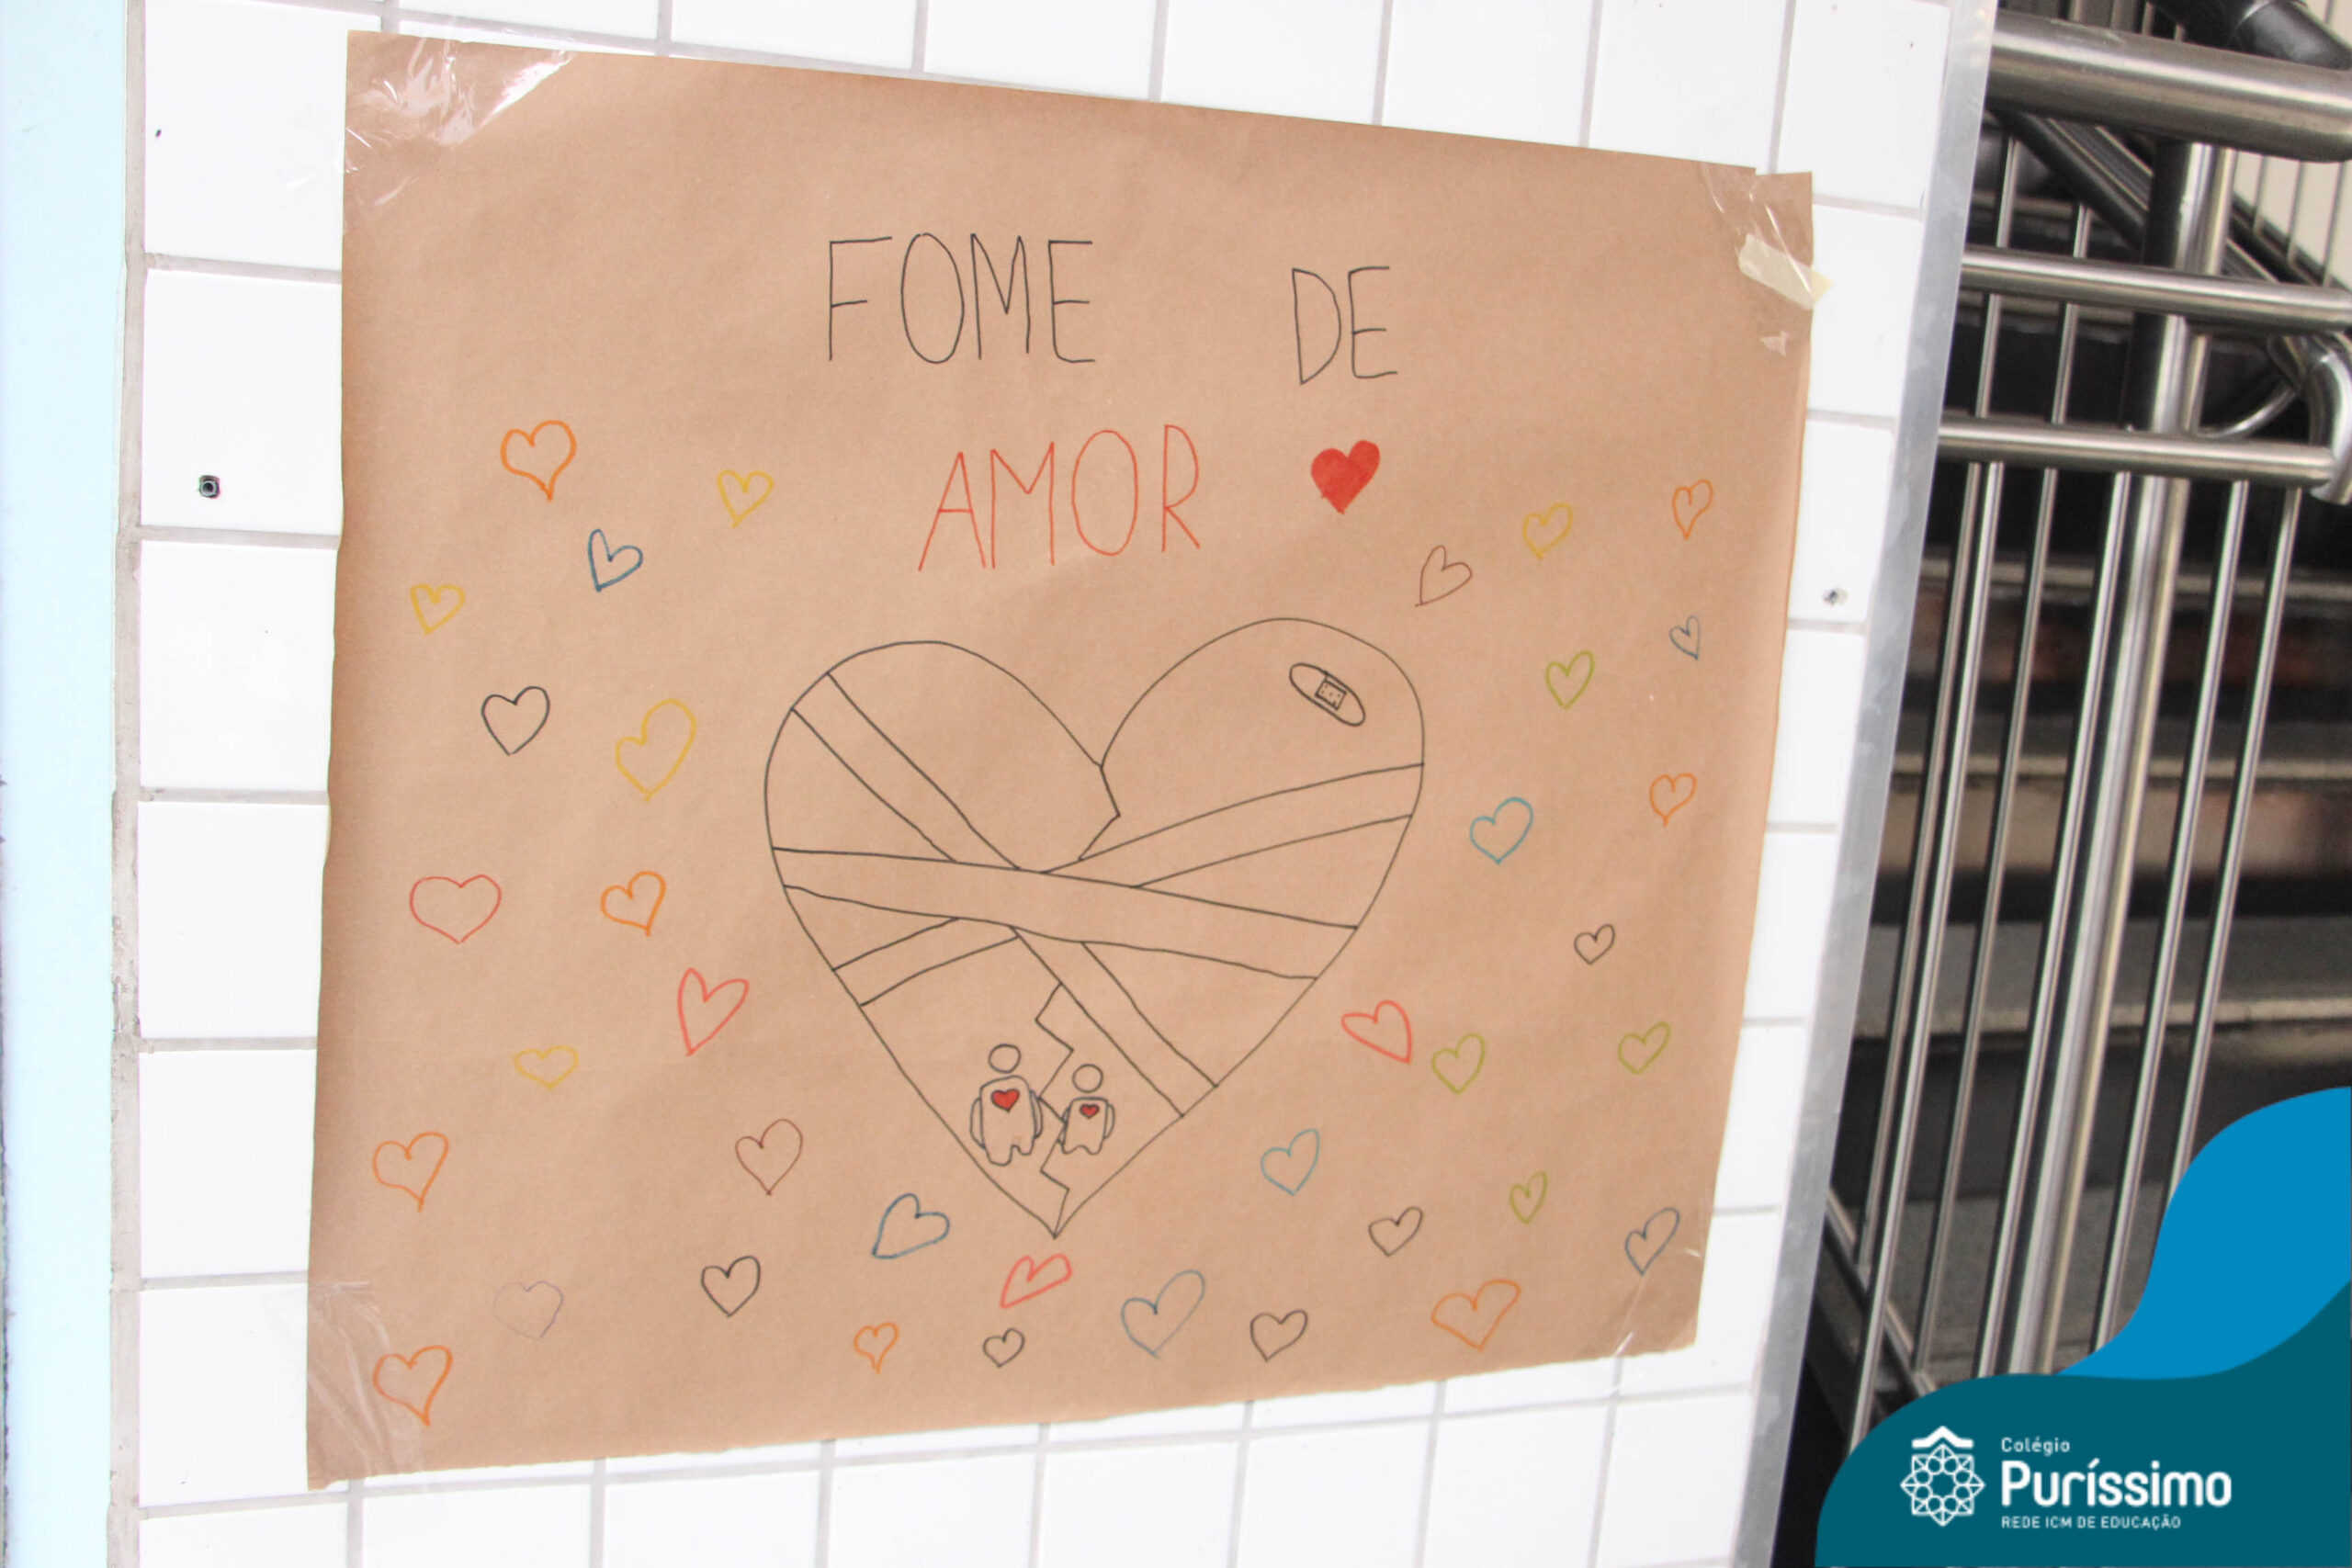 FOME DE
AMOR
Colégio
Puríssimo
REDE ICM DE EDUCAÇÃO